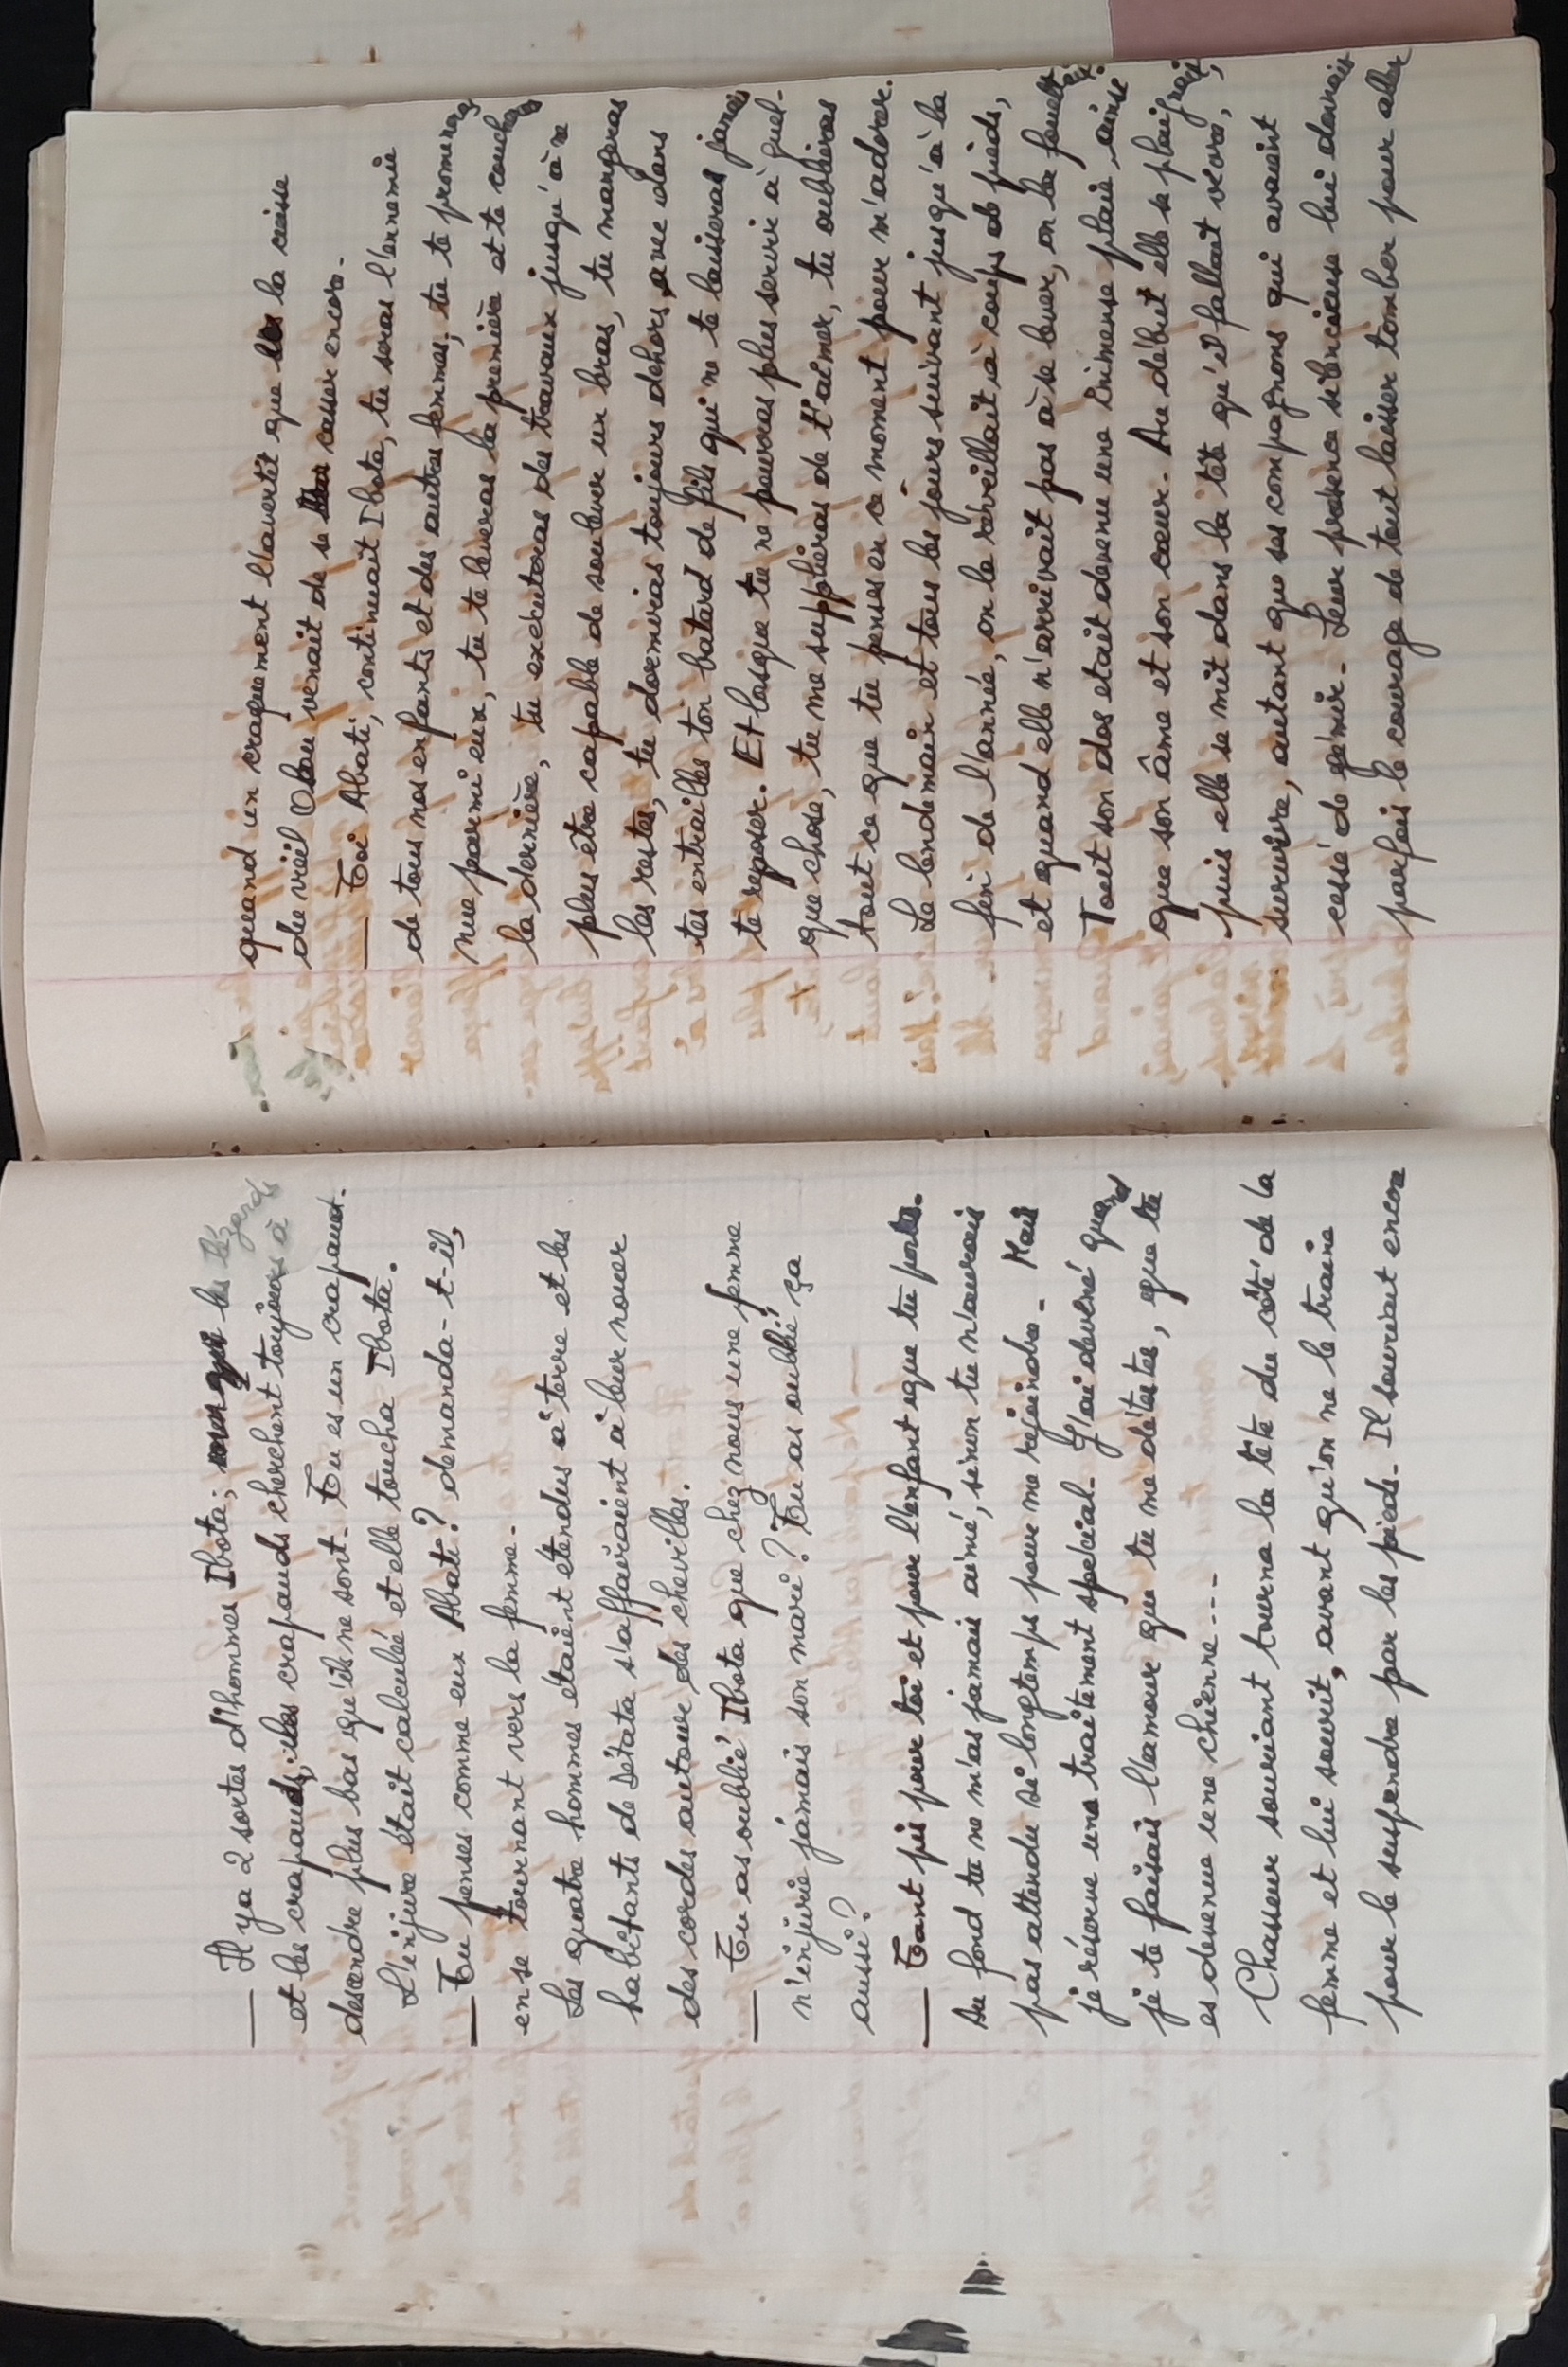 — Il y a 2 sortes d'hommes Ibota; les lézards
et les crapauds, les crapauds cherchent toujours à
descendre plus bas qu'ils ne sont. Tu es un crapaud.
L'injure était calculée et elle toucha Ibota.
— Tu penses comme eux Abati? demanda-t-il,
en se tournant vers la femme.
Les quatre hommes étaient étendus à terre et les
habitants de s'affairaient à leur nouer
des cordes autour des chevilles.
— Tu as oublié Ibota que chez nous une femme
n'injurie jamais son mari? Tu as oublié ça
aussi?
— Tant pis pour toi et pour l'enfant que tu portes.
Au fond tu ne m'as jamais aimé, sinon tu n'aurais
pas attendu si longtemps pour me rejoindre. Mais
je réserve un traitement spécial. J'ai deviné quand
je te faisais l'amour que tu me détestes, que tu
es devenue une chienne...
Chasseur souriant tourna la tête du côté de la
femme et lui sourit, avant qu'on ne le traine
pour le suspendre par les pieds. Il souriait encore
quand un craquement l'avertit que la cuisse
du vieil venait de se casser encore.
— Toi Abati, continuait Ibota, tu seras l'ennemie
de tous nos enfants et des autres femmes; tu te promeneras
nue parmi eux, tu te leveras la première et te coucheras
la dernière, tu executeras des travaux jusqu'à ne
plus être capable de soulever un bras, tu mangeras
les restes, tu dormiras toujours dehors, avec dans
tes entrailles ton batard de fils qui ne te laisseras jamais
te reposer. Et losque tu ne pourras plus servir à quel-
que chose, tu me supplieras de t'aimer, tu oublieras
tout ce que tu penses en ce moment pour m'adorer.
Le lendemain et tous les jours suivant jusqu'à la
fin de l'année, on le réveillait à coups de pieds,
et quand elle n'arrivait pas à se lever, on la fouettait.
Tout son dos etait devenu une immense plaie ainsi
que son âme et son cœur. Au début elle se plaignait,
puis elle se mit dans la tête qu'il fallait vivre,
survivre, autant que ses compagnons qui avaient
cessé de gémir. Leur présence silencieuse lui donnait
parfois le courage de tout laisser tomber pour aller